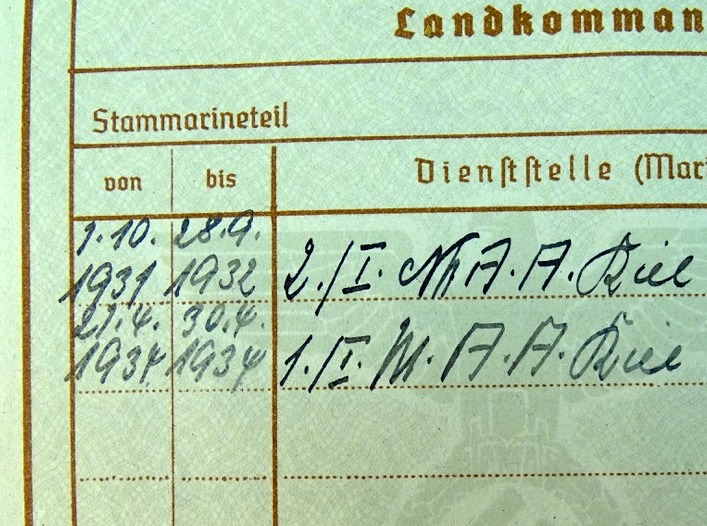 Landkomman
Stammarineteil
von bis Dienststelle (Mar
1.10. 28.9.
1931 1932 2./I. M.A.A. Kiel
27.4. 30.4.
1934 1934 1./I. M.A.A. Kiel